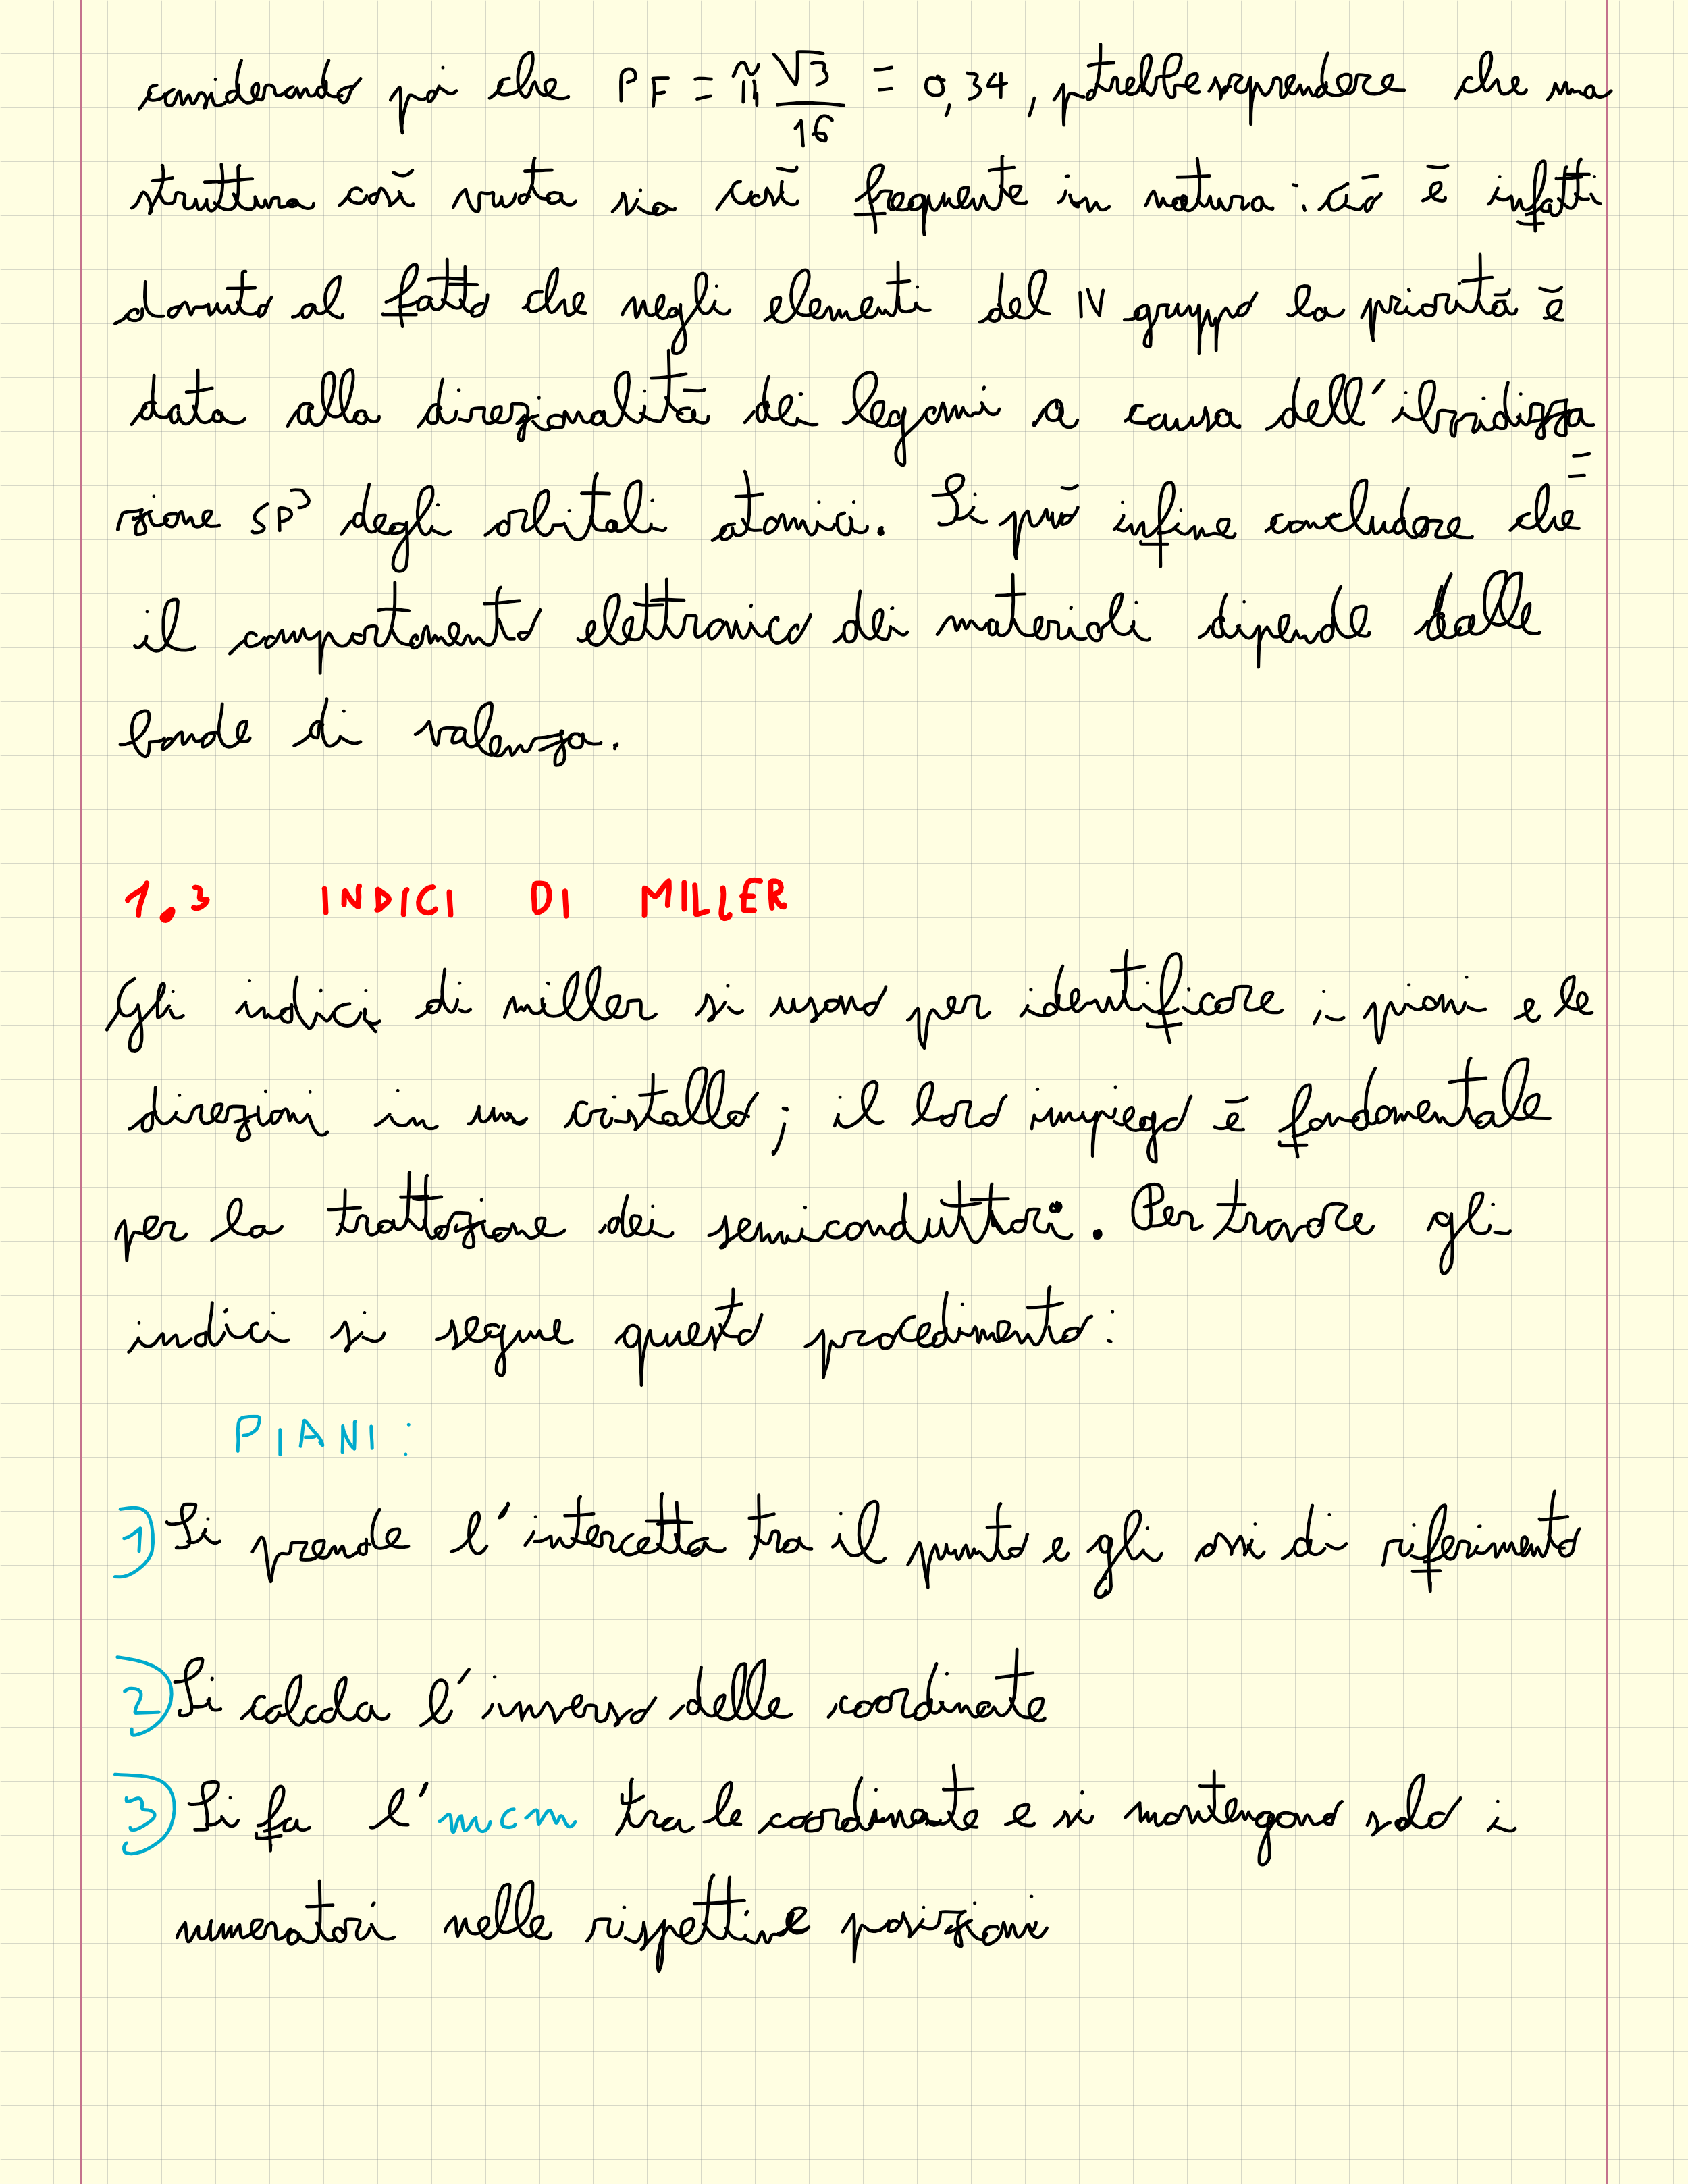 considerando poi che PF = π √3/16 = 0,34, potrebbe sorprendere che una
struttura così vuota sia così frequente in natura: ciò è infatti
dovuto al fatto che negli elementi del IV gruppo la priorità è
data alla direzionalità dei legami a causa dell'ibridizza
zione SP³ degli orbitali atomici. Si può infine concludere che
il comportamento elettronico dei materiali dipende dalle
bande di valenza.
1.3 INDICI DI MILLER
Gli indici di miller si usano per identificare i piani e le
direzioni in un cristallo; il loro impiego è fondamentale
per la trattazione dei semiconduttori. Per trovare gli
indici si segue questo procedimento:
PIANI:
1) Si prende l'intercetta tra il punto e gli assi di riferimento
2) Si calcola l'inverso delle coordinate
3) Si fa l'mcm tra le coordinate e si mantengono solo i
numeratori nelle rispettive posizioni